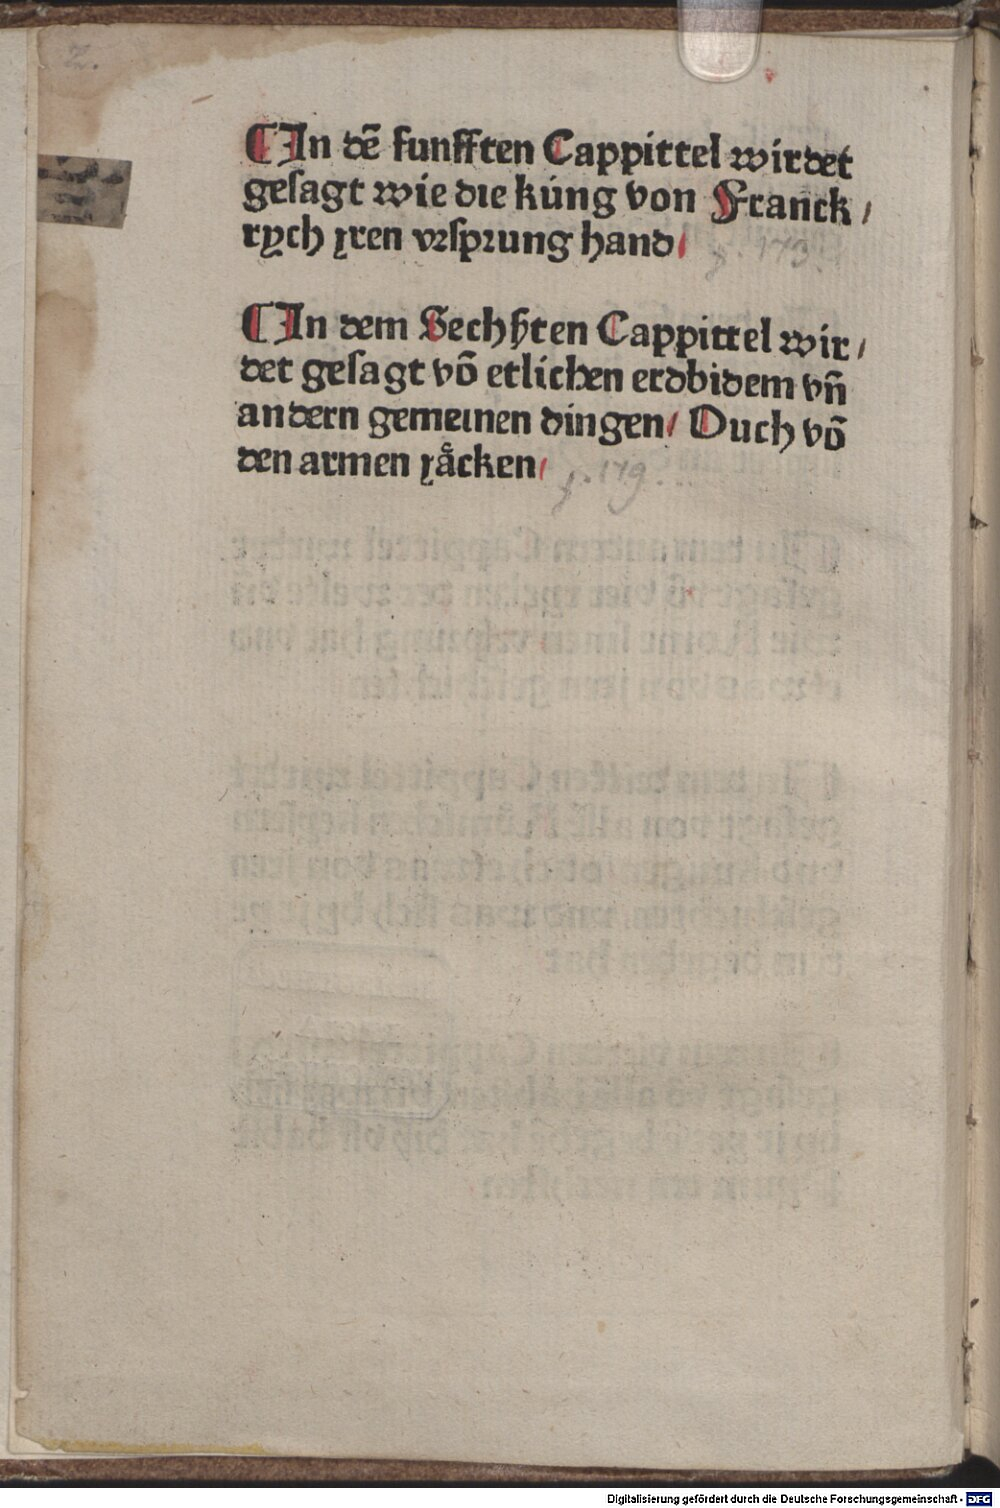 2.
¶ In dē funfften Cappittel wirdet
gesagt wie die kúng von Franck/
rych yren vrsprung hand/
f. 173.
¶ In dem Sechſten Cappittel wir/
det gesagt vō etlichen erdbidem vn̄
andern gemeinen dingen/ Ouch vō
den armen yåcken/
f. 179.
Digitalisierung gefördert durch die Deutsche Forschungsgemeinschaft - DFG